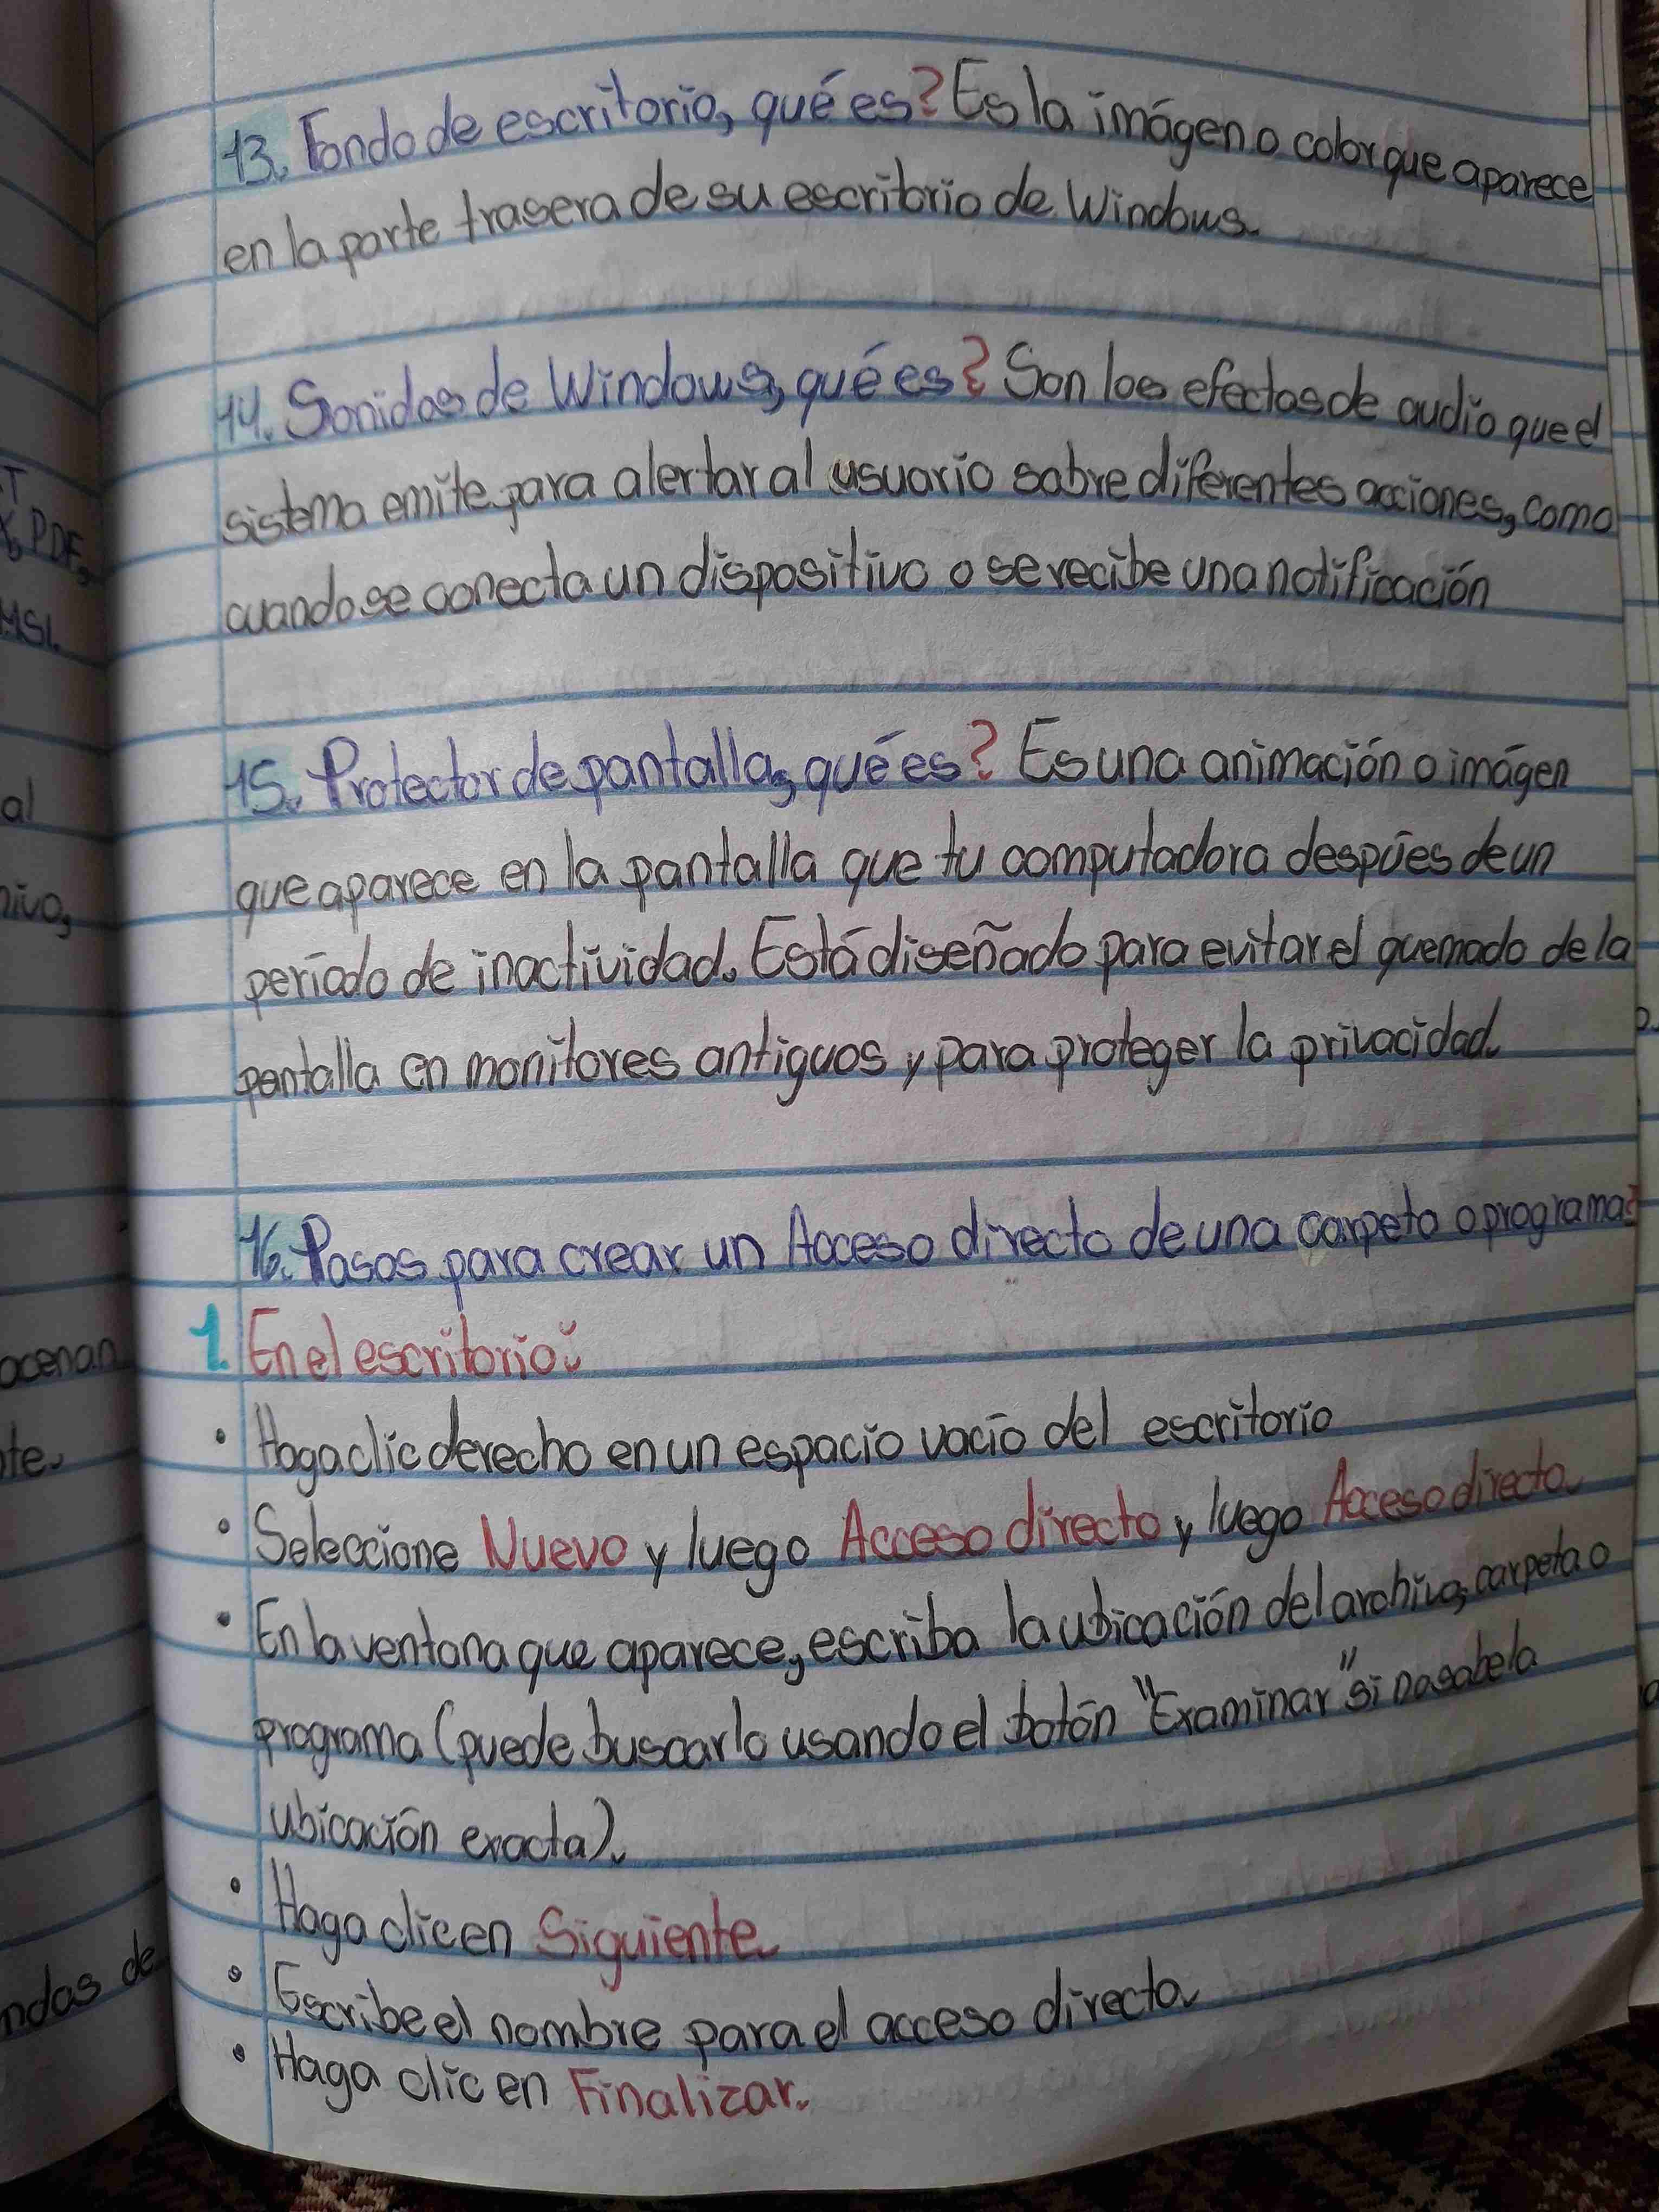 13. Fondo de escritorio, qué es? Es la imágen o color que aparece
en la parte trasera de su escritorio de Windows.
14. Sonidos de Windows, qué es? Son los efectos de audio que el
sistema emite para alertar al usuario sobre diferentes acciones, como
cuando se conecta un dispositivo o se recibe una notificación
15. Protector de pantalla, qué es? Es una animación o imágen
que aparece en la pantalla que tu computadora despúes de un
período de inactividad. Está diseñado para evitar el quemado de la
pantalla en monitores antiguos y para proteger la privacidad.
16. Pasos para crear un Acceso directo de una carpeta o programa?
1. En el escritorio:
• Haga clic derecho en un espacio vacío del escritorio
• Seleccione Nuevo y luego Acceso directo y luego Acceso directo.
• En la ventana que aparece, escriba la ubicación del archivo, carpeta o
programa (puede buscarlo usando el botón "Examinar" si no sabe la
ubicación exacta).
• Haga clic en Siguiente.
• Escribe el nombre para el acceso directo.
• Haga clic en Finalizar.
T
PDF,
MSI.
al
hivo,
ocenan
te.
ndos de